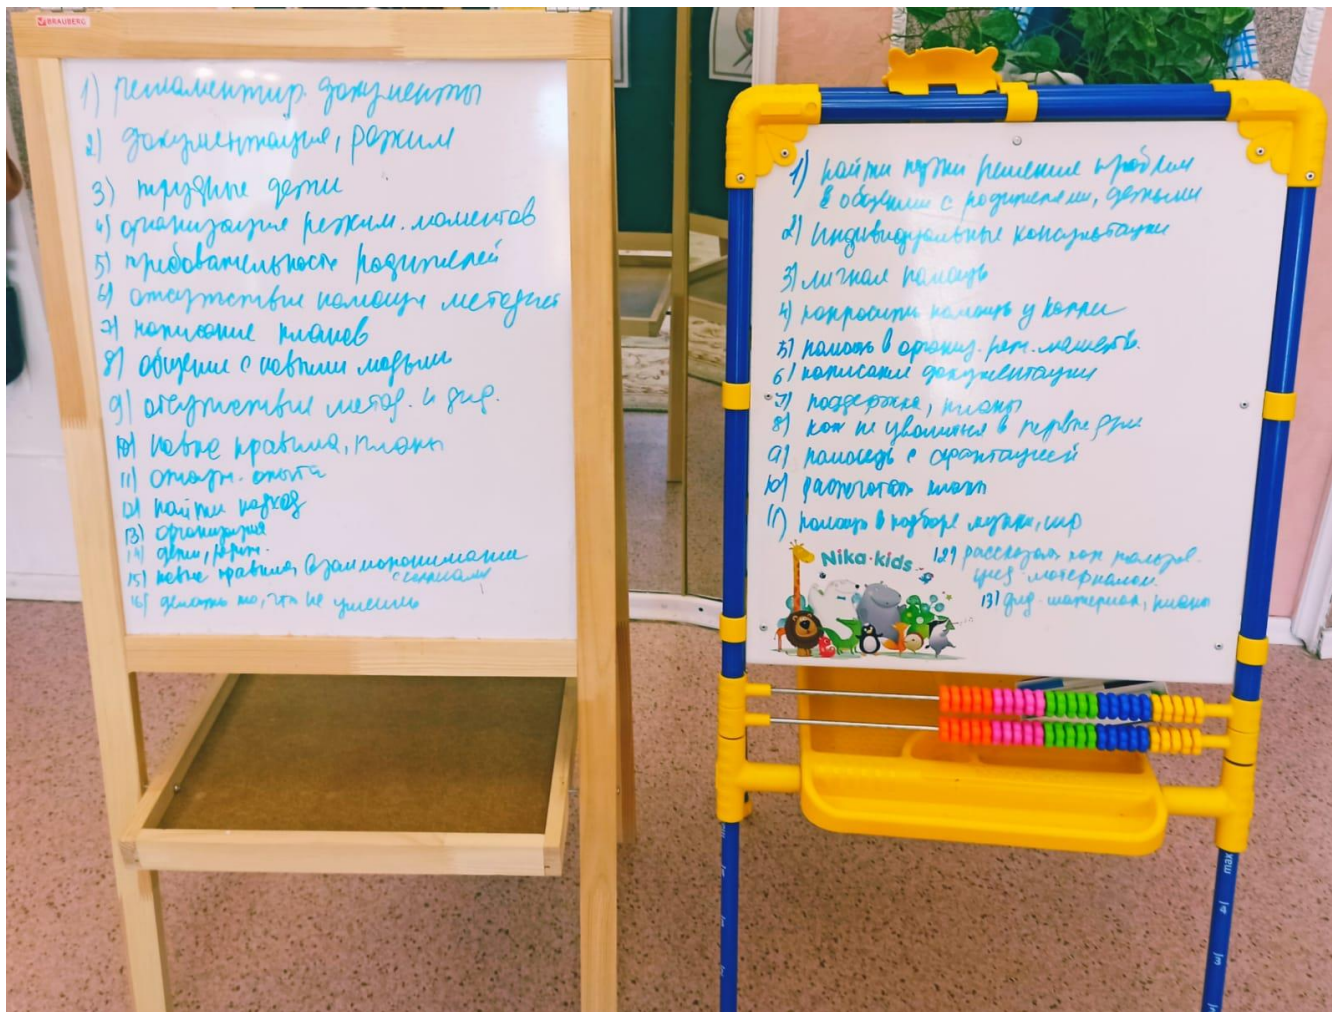 BRAUBERG
1) регламентир. документы
2) документация, режим
3) трудные дети
4) организация режим. моментов
5) требовательность родителей
6) отсутствие помощи
7) написание планов
8) общение с новыми людьми
9) отсутствие метод. и дид.
10) новые правила, планы
11) отсутв. опыта
12) найти подход
13) организация
14) дети,
15) новые правила, взаимопонимание
16) делать то, что не умеешь
1) найти пути решение проблем
в общении с родителями, детьми
2) индивидуальные консультации
3) личная помощь
4) попросить помощь у
5) помощь в организ. реж.
6) написание документации
7) поддержка, планы
8) как не уволиться в первые дни
9) помощь с адаптацией
10) планы
11) помощь в подборе
Nika·kids
12) рассказать как пользов.
материалом.
13) дид. материал, планы
max